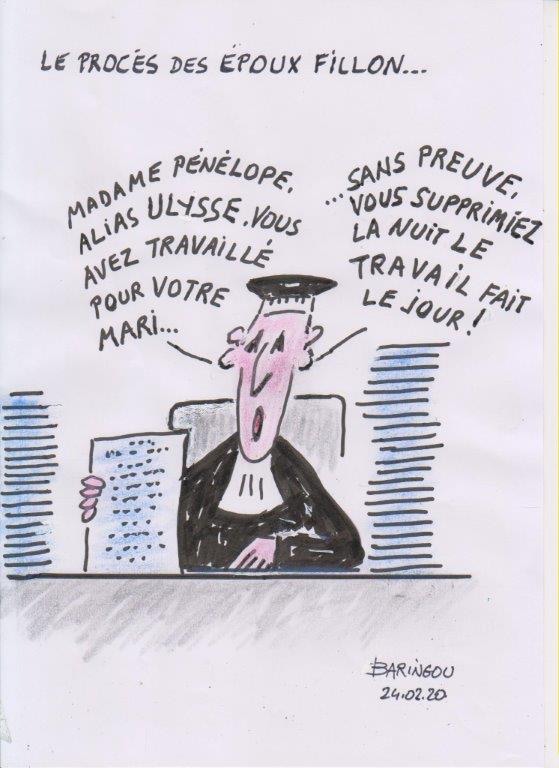 LE PROCÉS DES ÉPOUX FILLON...
MADAME PÉNÉLOPE,
ALIAS ULYSSE, VOUS
AVEZ TRAVAILLÉ
POUR VOTRE
MARI...
...SANS PREUVE,
VOUS SUPPRIMIEZ
LA NUIT LE
TRAVAIL FAIT
LE JOUR!
BARINGOU
24.02.20